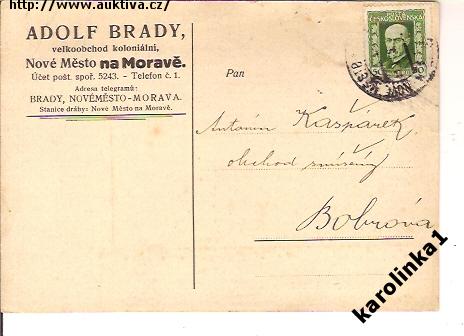 http://www.auktiva.cz/
ADOLF BRADY,
velkoobchod koloniální,
Nové Město na Moravě.
Účet pošt. spoř. 5243. – Telefon č. 1.
Adresa telegramů:
BRADY, NOVÉMĚSTO-MORAVA.
Stanice dráhy: Nové Město na Moravě.
ČESKOSLOVENSKÁ
Pan
Antonín Kašpárek
obchod smíšený
Bobrová
karolinka1